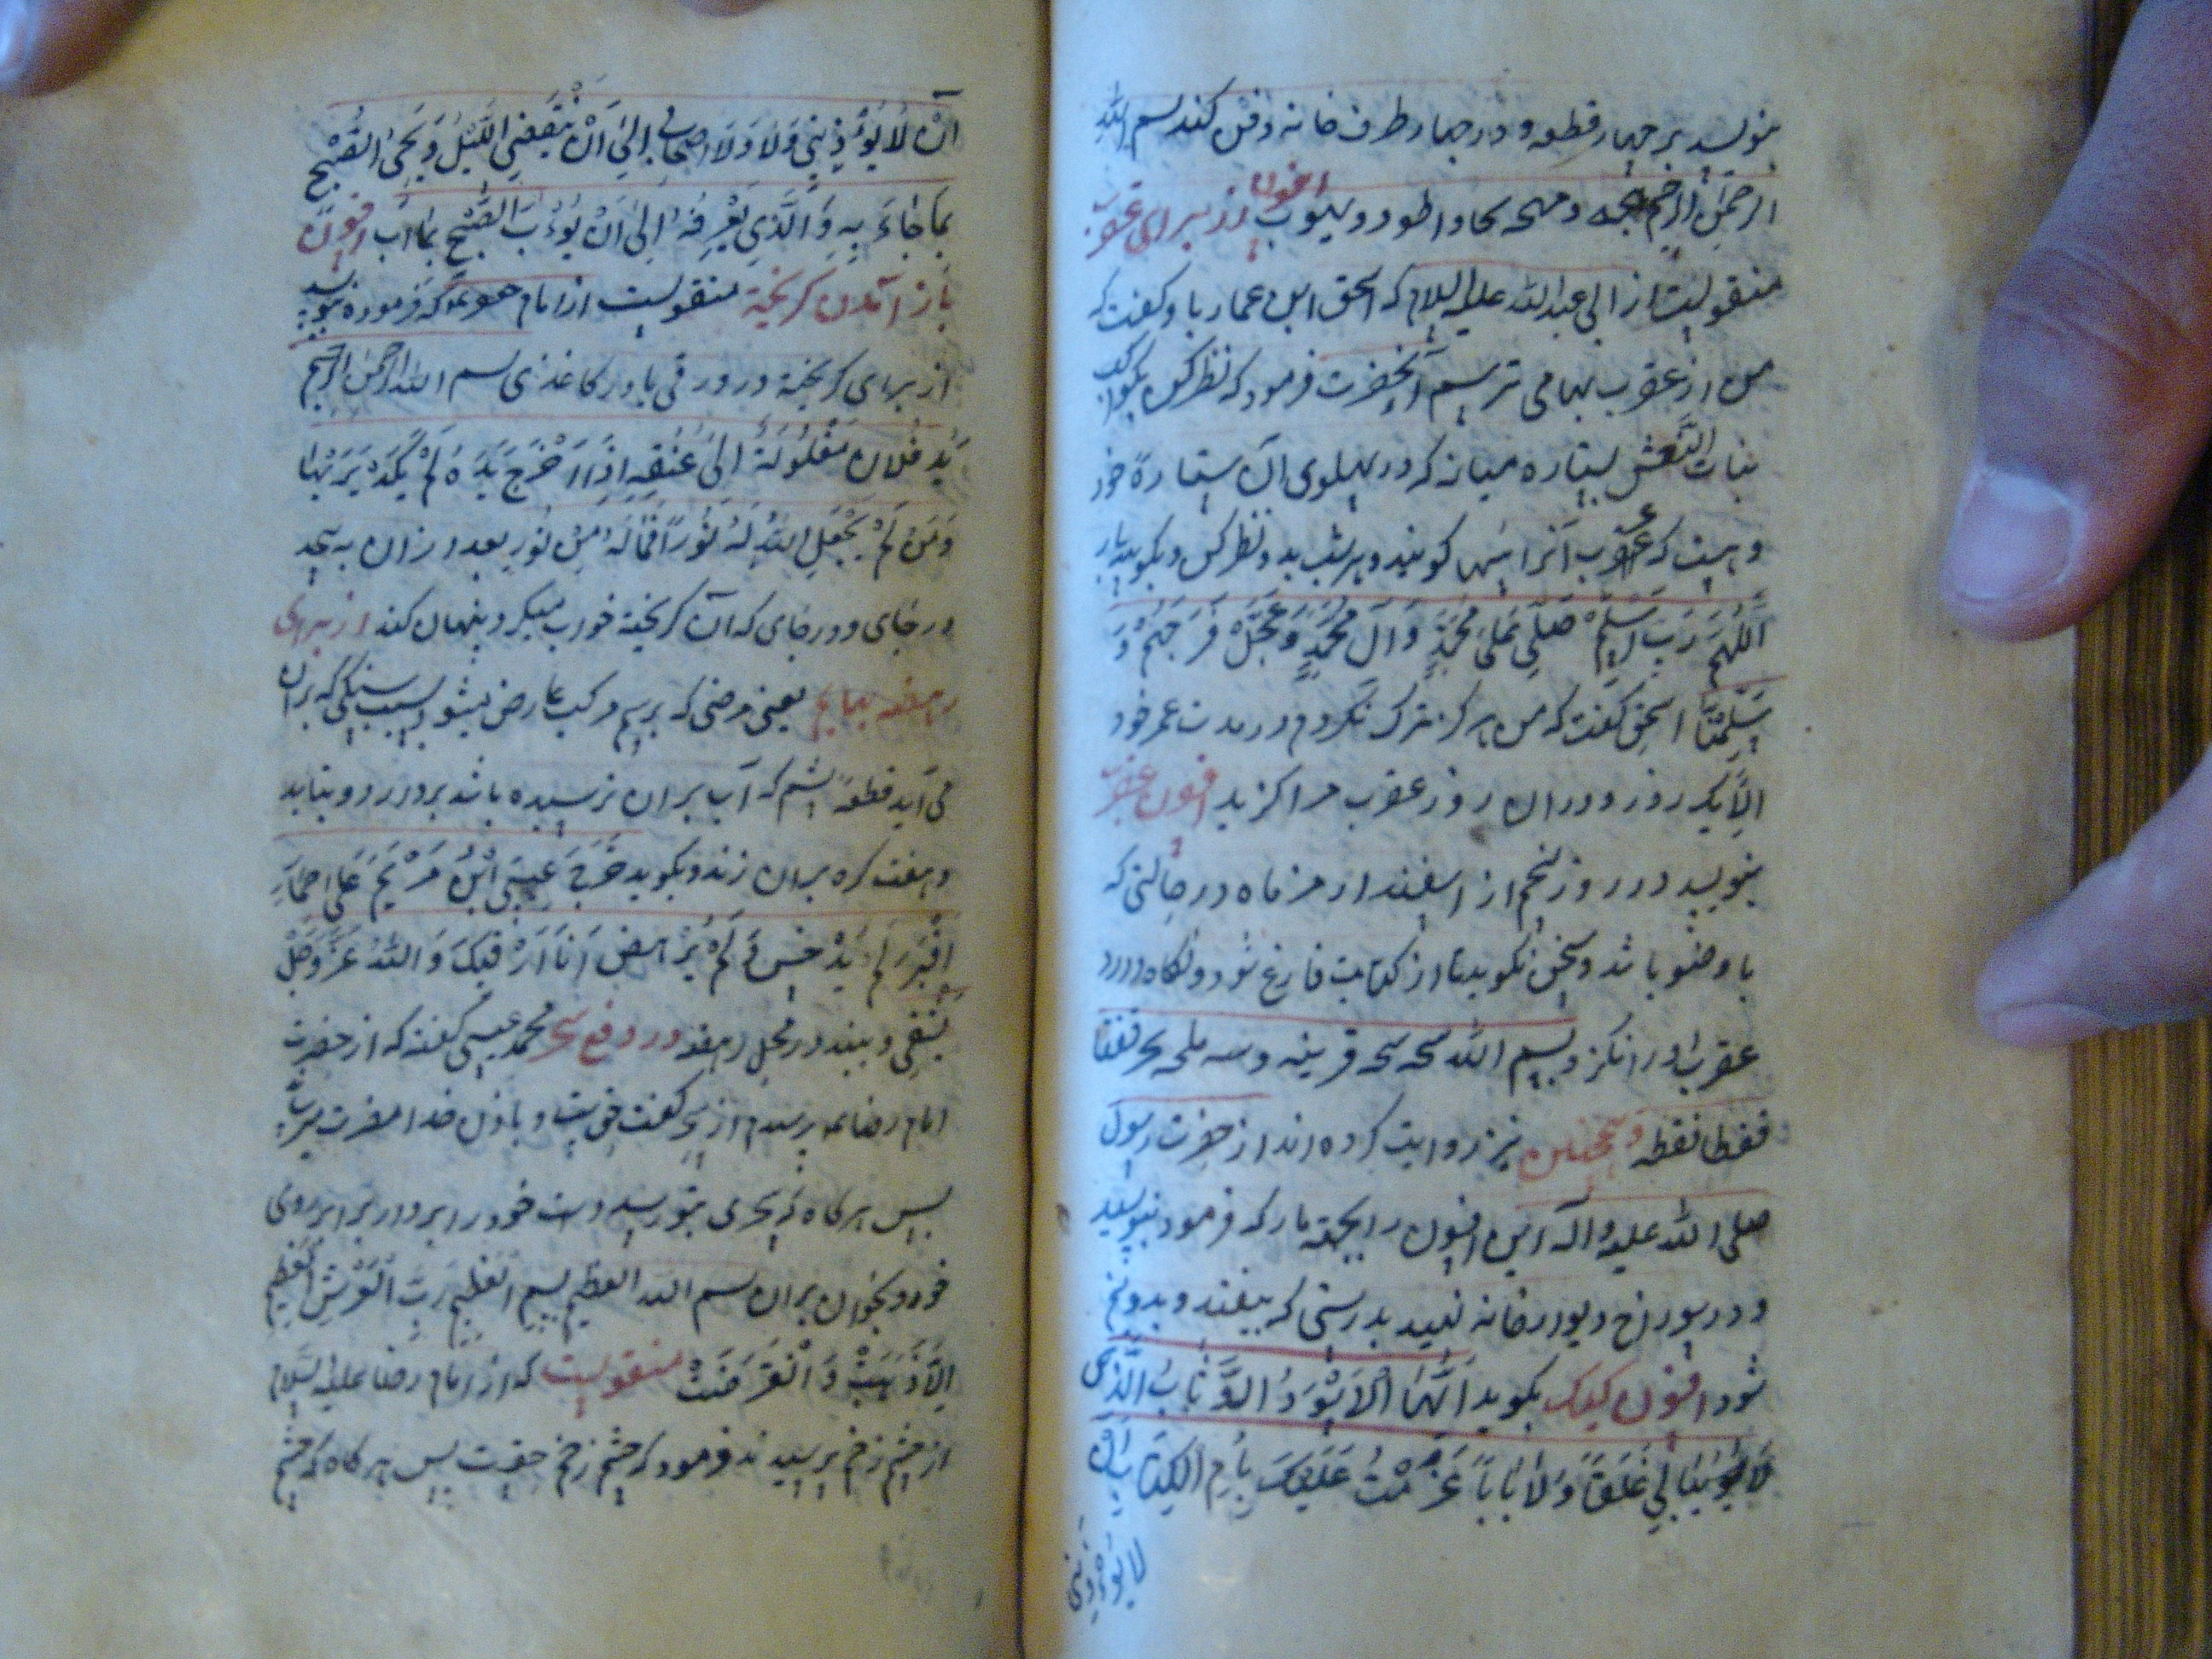 بنویسید بر چهار قطعه و در چهار طرف خانه دفن کنند بسم الله
الرحمن الرحیم افسون از برای عقرب
منقولست از ابی عبدالله علیه السلام که اسحق ابن عمار باو کفت که
من از عقربها می ترسم آنحضرت فرمود که نظر کن بکواکب
بنات النعش بستاره میانه که در پهلوی آن ستارهٔ خورد
وهست که عرب آنرا سها کویند و هر شب بدو نظر کن و بکوی سه بار
اَللّهُمَّ رَبَّ اَسْلَمْ صَلِّی عَلیٰ مُحَمَّدٍ وَ آلَ مُحَمَّدٍ وَ عَجِّلْ فَرَجَهُمْ وَ
سَلِّمْنَا اسحق کفت که من هرکز ترک نکردم در مدت عمر خود
اِلّا یک روز و در ان روز عقرب مرا کزید افسون عقرب
بنویسد در روز پنجم از اسفندارمز ماه در حالتی که
با وضو باشد و سخن نکوید تا از کتابت فارغ شود و نکاه دارد
عقرب او را نکزد بسم الله سجه سجه قرینه و سه ملحه بحر قفقا
فقطا نقطه و همچنین نیز روایت کرده اند از حضرت رسول
صلی الله علیه و اله این افسون را بجهة مار که فرمود بنویسید
و در سوراخ دیوار خانه نهید بدرستی که بیفتد و بدو نیم
شود افسون کیک بکوید اَیُّهَا الْاَسْوَدُ الْوَثَّابُ الَّذی
لَا یُبٰالِی غَلَقاً وَلٰا بٰاباً عَزَمْتُ عَلَیْکَ بِاُمِّ الْکِتٰابِ اَنْ
لا یؤذینی
اَنْ لٰا یُؤذِینِی وَلٰا وَلَا اصحابی اِلیٰ اَنْ یَنْقَضِی اللَّیْلُ وَ یَجِیُٔ الصُّبْحُ
بِمٰا جٰاءَ بِهِ وَالَّذِی یَعْرِفُهُ اِلیٰ اَنْ یَؤُبَ الصُّبْحُ بِمٰا آبَ افسون
باز آمدن کریخته منقولست از امام که فرموده بنویسد
از برای کریخته در ورقی یا در کاغذی بسم الله الرحمن الرحیم
یَدُ فُلان مَغْلُولَةٌ اِلیٰ عُنُقِهِ اِذٰا اَخْرَجَ یَدَهُ لَمْ یَکَدْ یَرٰیهٰا
وَ مَنْ لَمْ یَجْعَلِ اللّٰهُ لَهُ نُوراً فَمٰالَهُ مِنْ نُورٍ بعد از ان به پیچد
در جای و در جای که آن کریخته خواب میکرد پنهان کند از برای
رهصه بهایم یعنی مرضی که بر سم مرکب عارض میشود بسبب سنکی که بران
می آید قطعهٔ پشم که آب بران نرسیده باشد بردارد و بتابد
و هفت کره بران زند و بکوید خَرَجَ عِیسَی ابْنُ مَرْیَمَ عَلیٰ حِمَارٍ
اَقْمَرَ لَمْ یَدْخُسْ وَ لَمْ یَرْهَصْ اَنَا اَرْقِیکَ وَ اللّٰهُ عَزَّ وَ جَلَّ
یَشْفِی و ببندد در محل رهصه در دفع سحر محمد عیسی کفته که از حضرت
امام رضا پرسیدم از سحر کفت حق است و باذن خدا مضرت میرساند
پس هرکاه که سحری بتو رسید دست خود را بردار برابر روی
خود و بخوان بران بسم الله العظیم بسم العظیم رَبِّ الْعَرْشِ الْعَظِیمِ
اِلّٰا ذَهَبَتْ وَ انْقَرَضَتْ منقولست که از امام رضا علیه السلام
از چشم زخم پرسیدند فرمود که چشم زخم حقست پس هرکاه که چشم